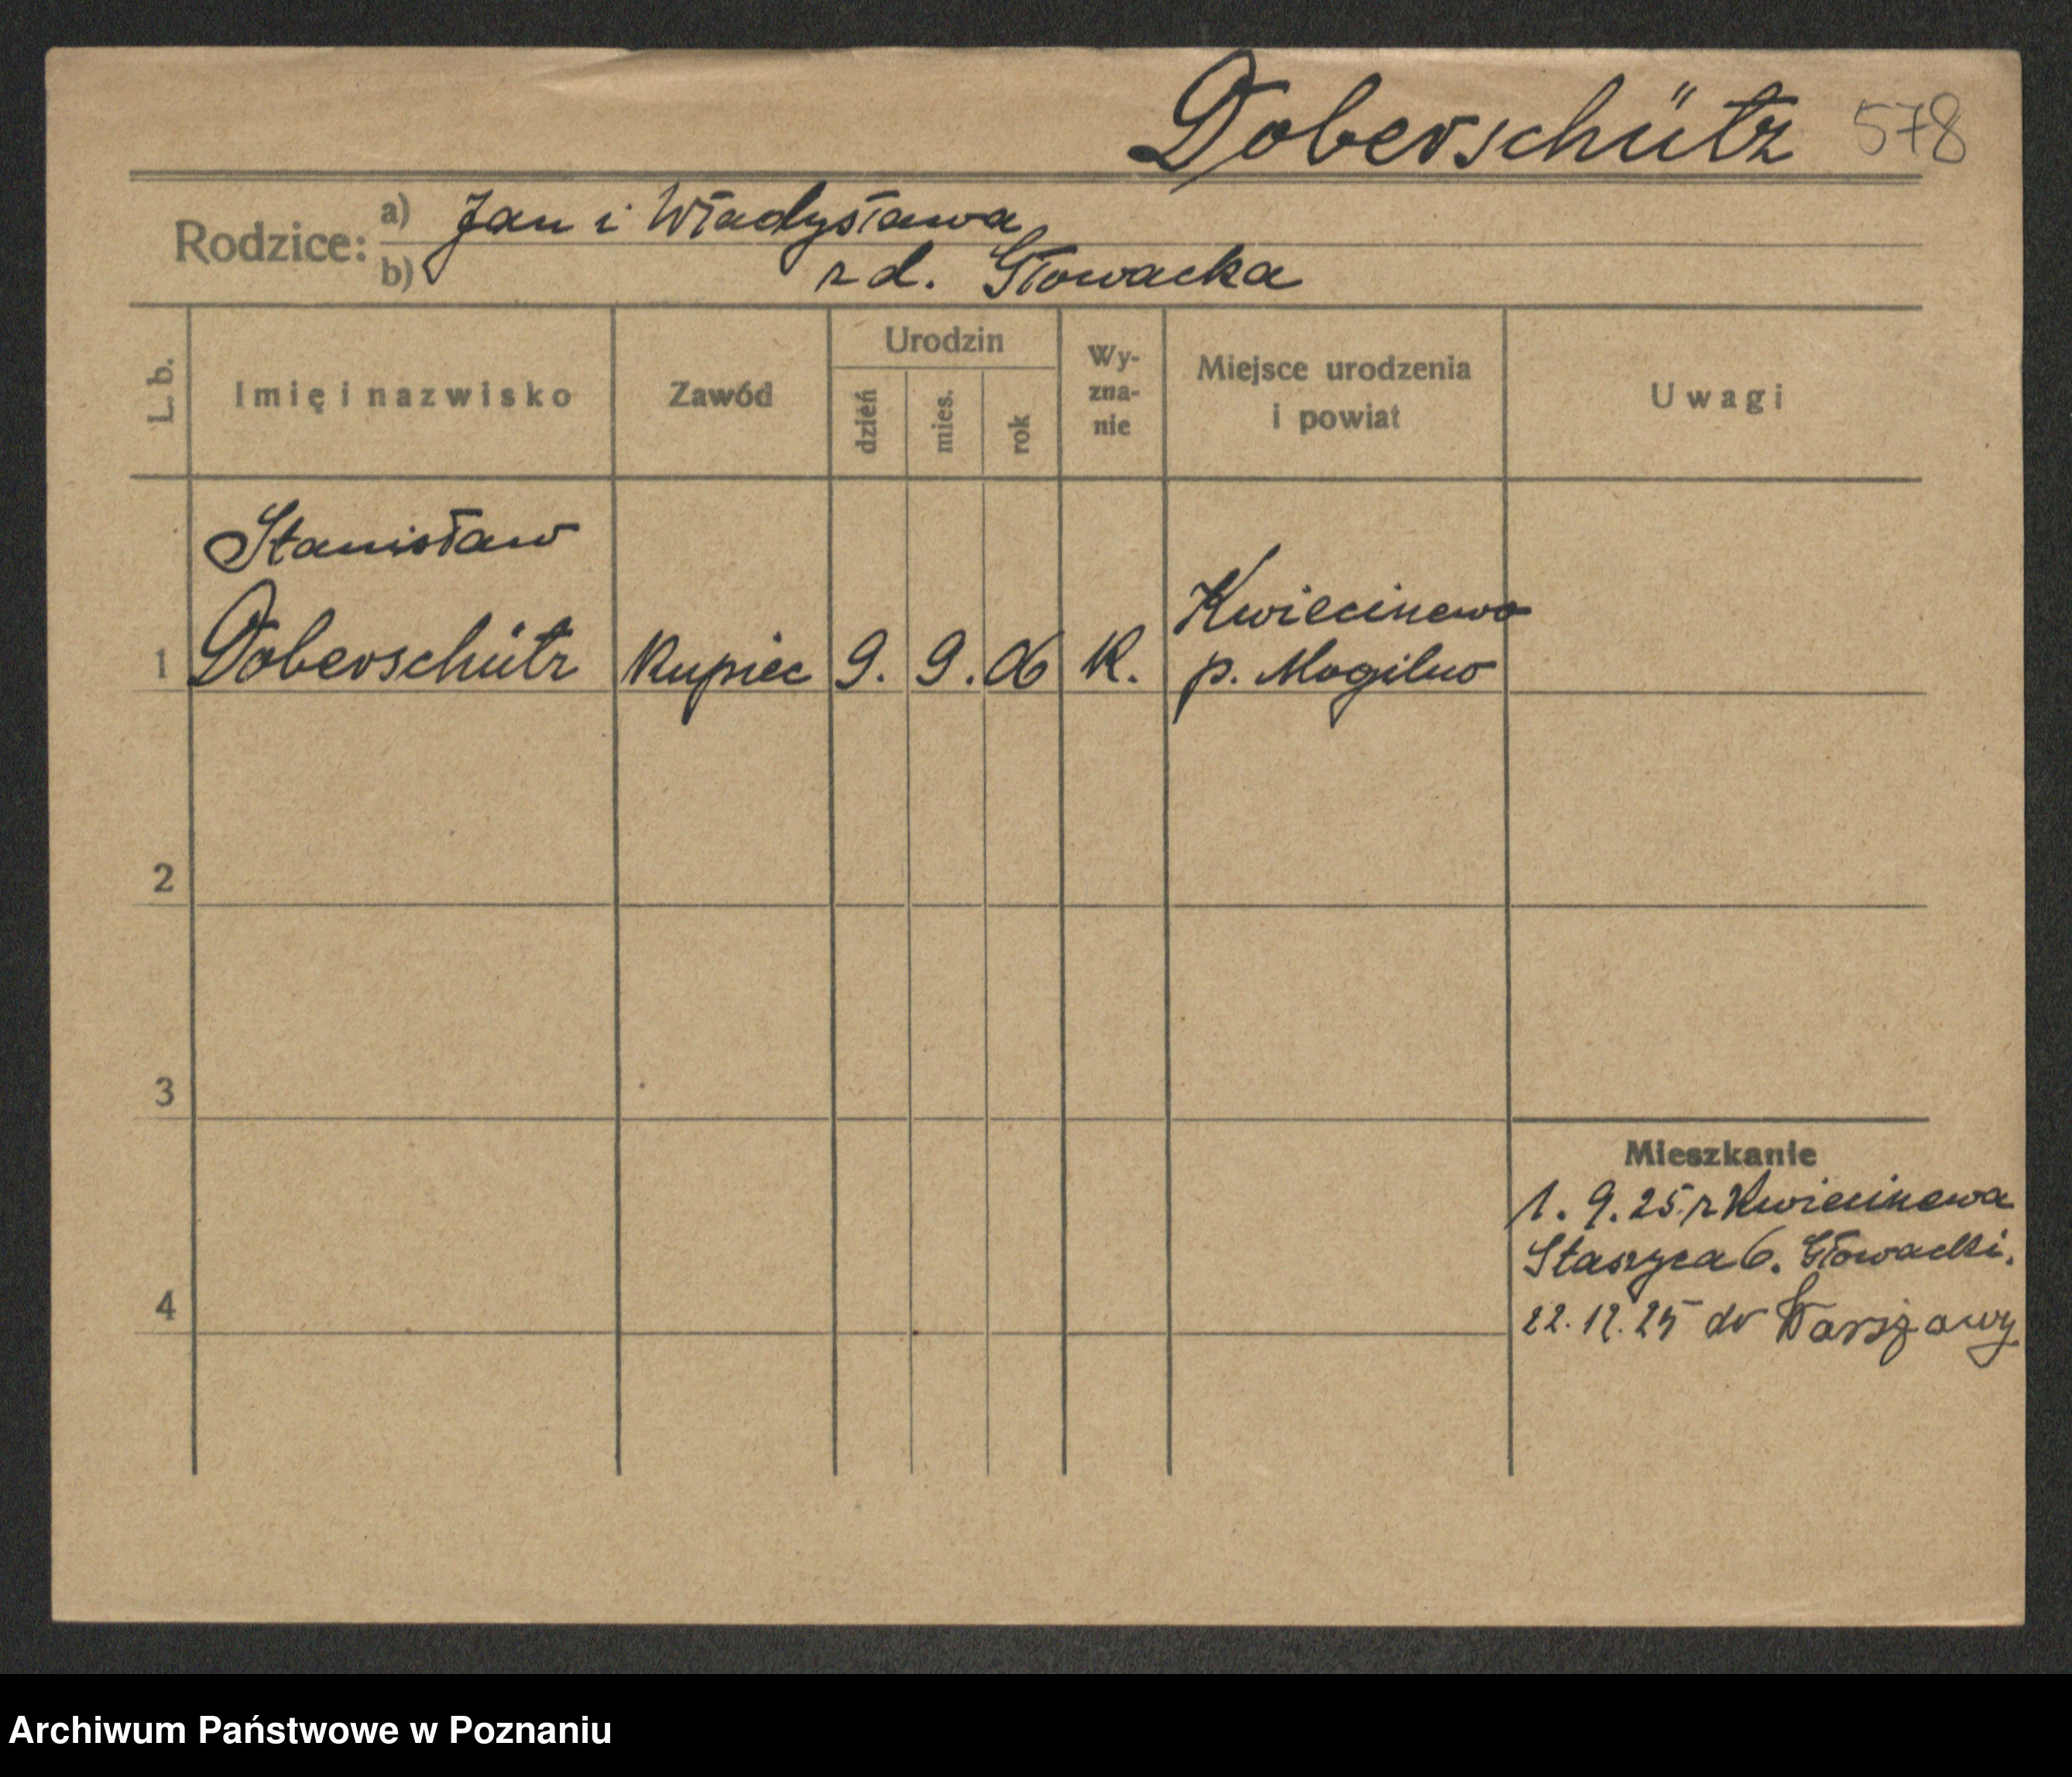 Doberschütz 578
Rodzice: a) Jan i Władysława
b) z d. Głowacka
L. b. Imię i nazwisko Zawód Urodzin dzień mies. rok Wy-zna-nie Miejsce urodzenia i powiat Uwagi
Stanisław
1 Doberschütz Kupiec 9. 9. 06 K. Kwiecinewo
p. Mogilno
2
3
Mieszkanie
1. 9. 25 z Kwiecinewa
Staszyca 6. Głowacki.
4 22. 12. 25 do Warszawy
Archiwum Państwowe w Poznaniu